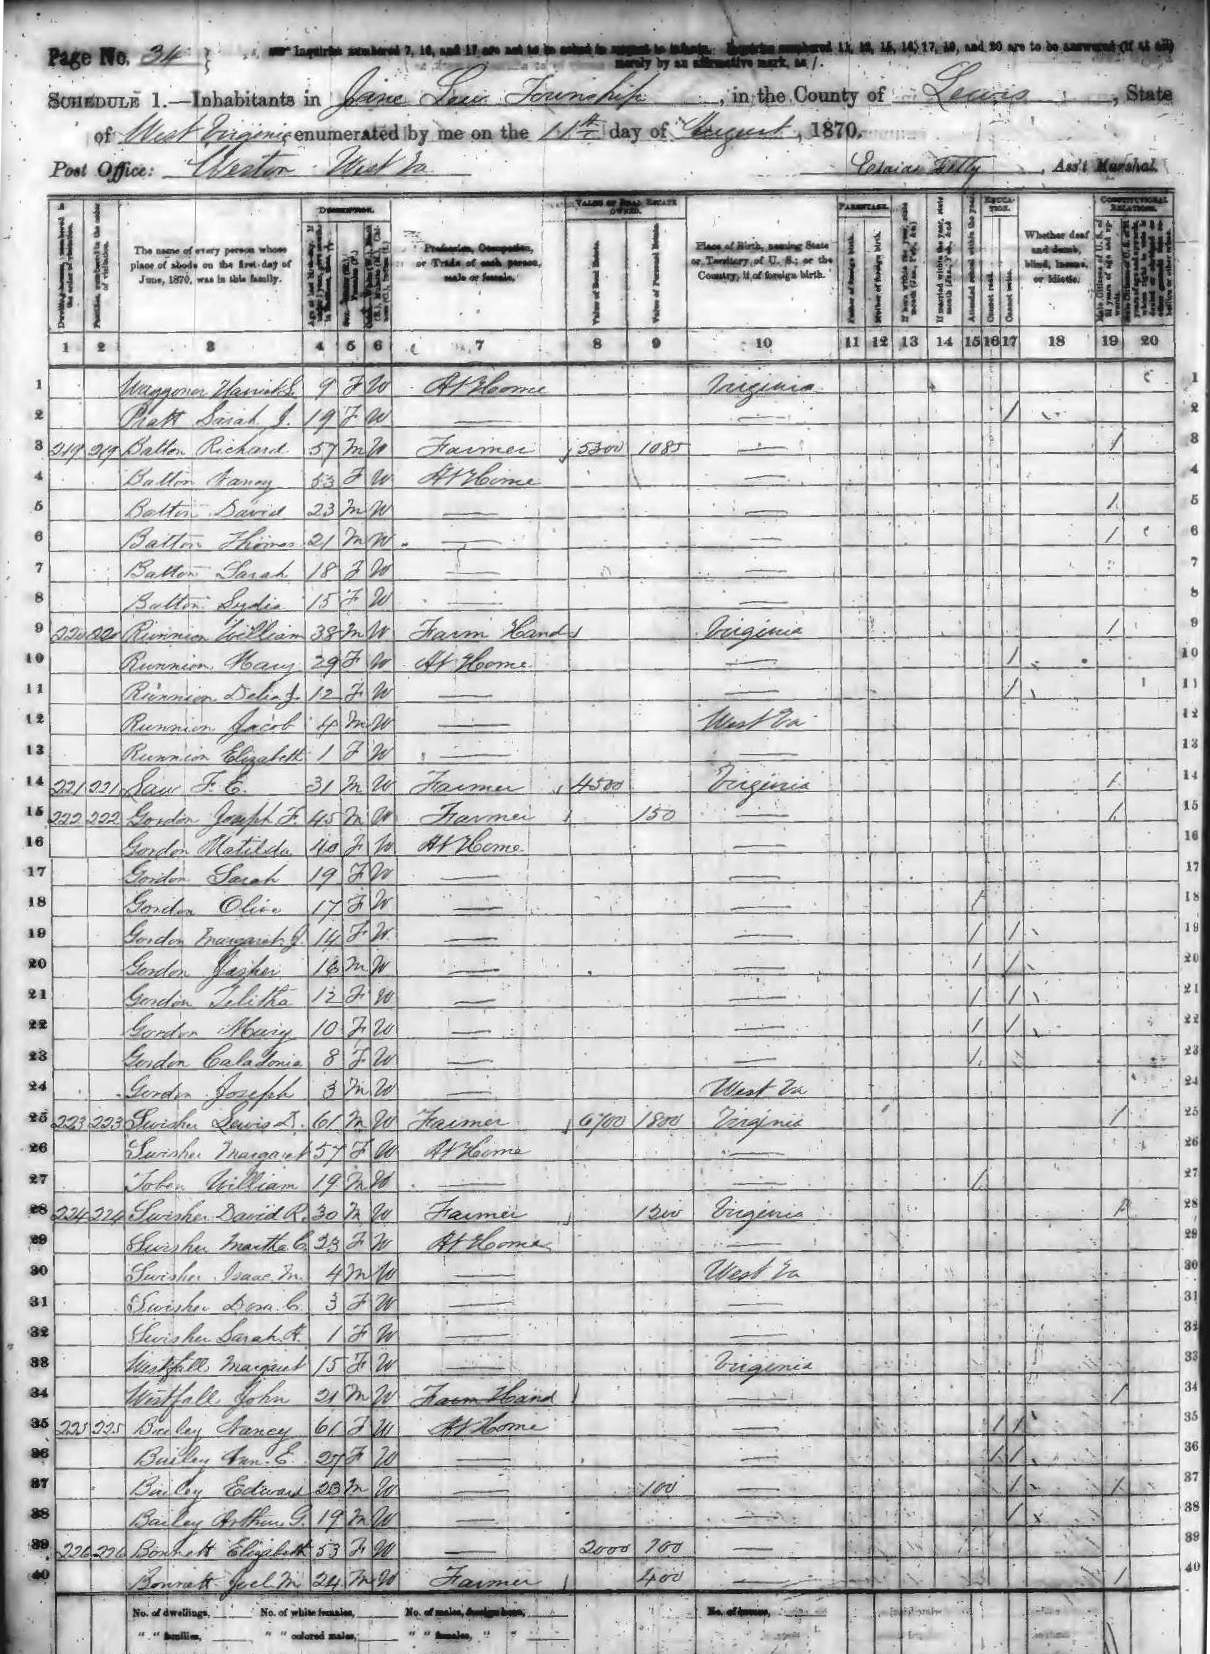 Page No. 34
merely by an affirmative mark, as /.
SCHEDULE 1.—Inhabitants in Jane Lew Township, in the County of Lewis, State
of West Virginia, enumerated by me on the 11th day of August, 1870.
Post Office: Weston West Va Fetty, Ass't Marshal.
DESCRIPTION. VALUE OF REAL ESTATE OWNED. PARENTAGE. EDUCATION. CONSTITUTIONAL RELATIONS.
The name of every person whose place of abode on the first day of June, 1870, was in this family.
Profession, Occupation, or Trade of each person, male or female.
Value of Real Estate. Value of Personal Estate.
Place of Birth, naming State or Territory of U. S.; or the Country, if of foreign birth.
Father of foreign birth. Mother of foreign birth.
Attended school within the year. Cannot read. Cannot write.
Whether deaf and dumb, blind, insane, or idiotic.
1 2 3 4 5 6 7 8 9 10 11 12 13 14 15 16 17 18 19 20
1 Waggoner Harriet S. 9 F W At Home Virginia 1
2 Pratt Sarah J. 19 F W — — / 2
3 219 219 Batton Richard 57 M W Farmer 5300 1085 — / 3
4 Batton Nancy 53 F W At Home — 4
5 Batton David 23 M W — — / 5
6 Batton Thomas 21 M W — — / 6
7 Batton Sarah 18 F W — — 7
8 Batton Lydia 15 F W — — 8
9 220 220 Runnion William 38 M W Farm Hand Virginia / 9
10 Runnion Mary 29 F W At Home — / 10
11 Runnion Delia J. 12 F W — — / 11
12 Runnion Jacob 4 M W — West Va 12
13 Runnion Elizabeth 1 F W — — 13
14 221 221 Law F. E. 31 M W Farmer 4500 Virginia / 14
15 222 222 Gordon Joseph F. 45 M W Farmer 150 — / 15
16 Gordon Matilda 40 F W At Home — 16
17 Gordon Sarah 19 F W — — 17
18 Gordon Olive 17 F W — — / 18
19 Gordon Margaret J. 14 F W — — / / 19
20 Gordon Jasper 13 M W — — / / 20
21 Gordon Telitha 12 F W — — / / 21
22 Gordon Mary 10 F W — — / / 22
23 Gordon Caladonia 8 F W — — / 23
24 Gordon Joseph 3 M W — West Va 24
25 223 223 Swisher Lewis D. 61 M W Farmer 6700 1800 Virginia / 25
26 Swisher Margaret 57 F W At Home — 26
27 Tober William 19 M W — — / 27
28 224 224 Swisher David R. 30 M W Farmer 1200 Virginia / 28
29 Swisher Martha C. 23 F W At Home — 29
30 Swisher Isaac M. 4 M W — West Va 30
31 Swisher Dora C. 3 F W — — 31
32 Swisher Sarah A. 1 F W — — 32
33 Westfall Margaret 15 F W — Virginia 33
34 Westfall John 21 M W Farm Hand — / 34
35 225 225 Bailey Nancy 61 F W At Home — / / 35
36 Bailey Ann E. 27 F W — — / / 36
37 Bailey Edward 23 M W — 100 — / / 37
38 Bailey Arthur G. 19 M W — — / 38
39 226 226 Bonnett Elizabeth 53 F W — 2000 700 — 39
40 Bonnett Joel M 24 M W Farmer 400 — / 40
No. of dwellings, No. of white females, No. of males, foreign born, No. of insane,
" " families, " " colored males, " " females, " "